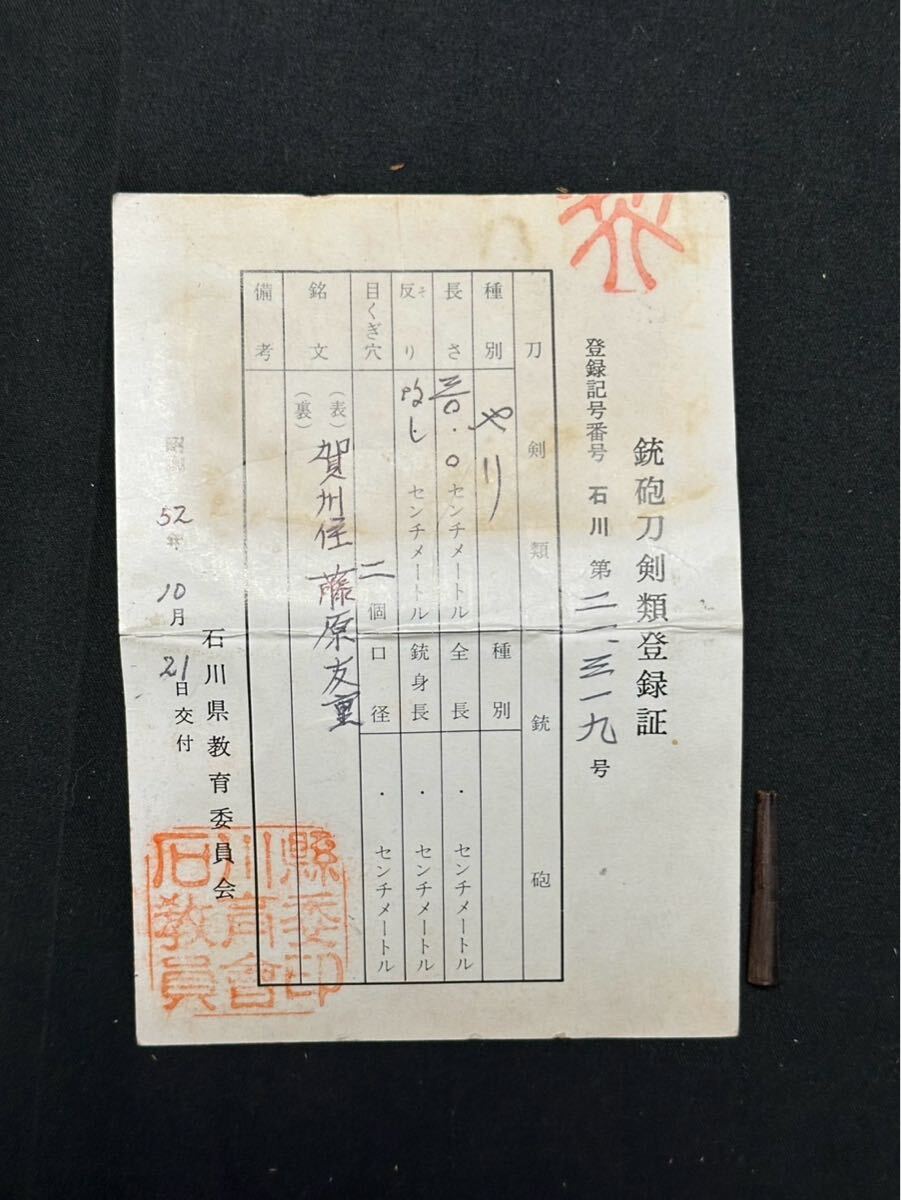 銃砲刀剣類登録証
登録記号番号 石川 第二一三一九号
刀剣類 銃砲
種別 やり 種別
長さ 三〇.〇センチメートル 全長 ・ センチメートル
反り そ なし ・ センチメートル 銃身長 ・ センチメートル
目くぎ穴 二個 口径 ・ センチメートル
銘文 (表) 賀州住藤原友重
(裏)
備考
52年10月21日交付
石川県教育委員会
石川縣
教育委
員會印